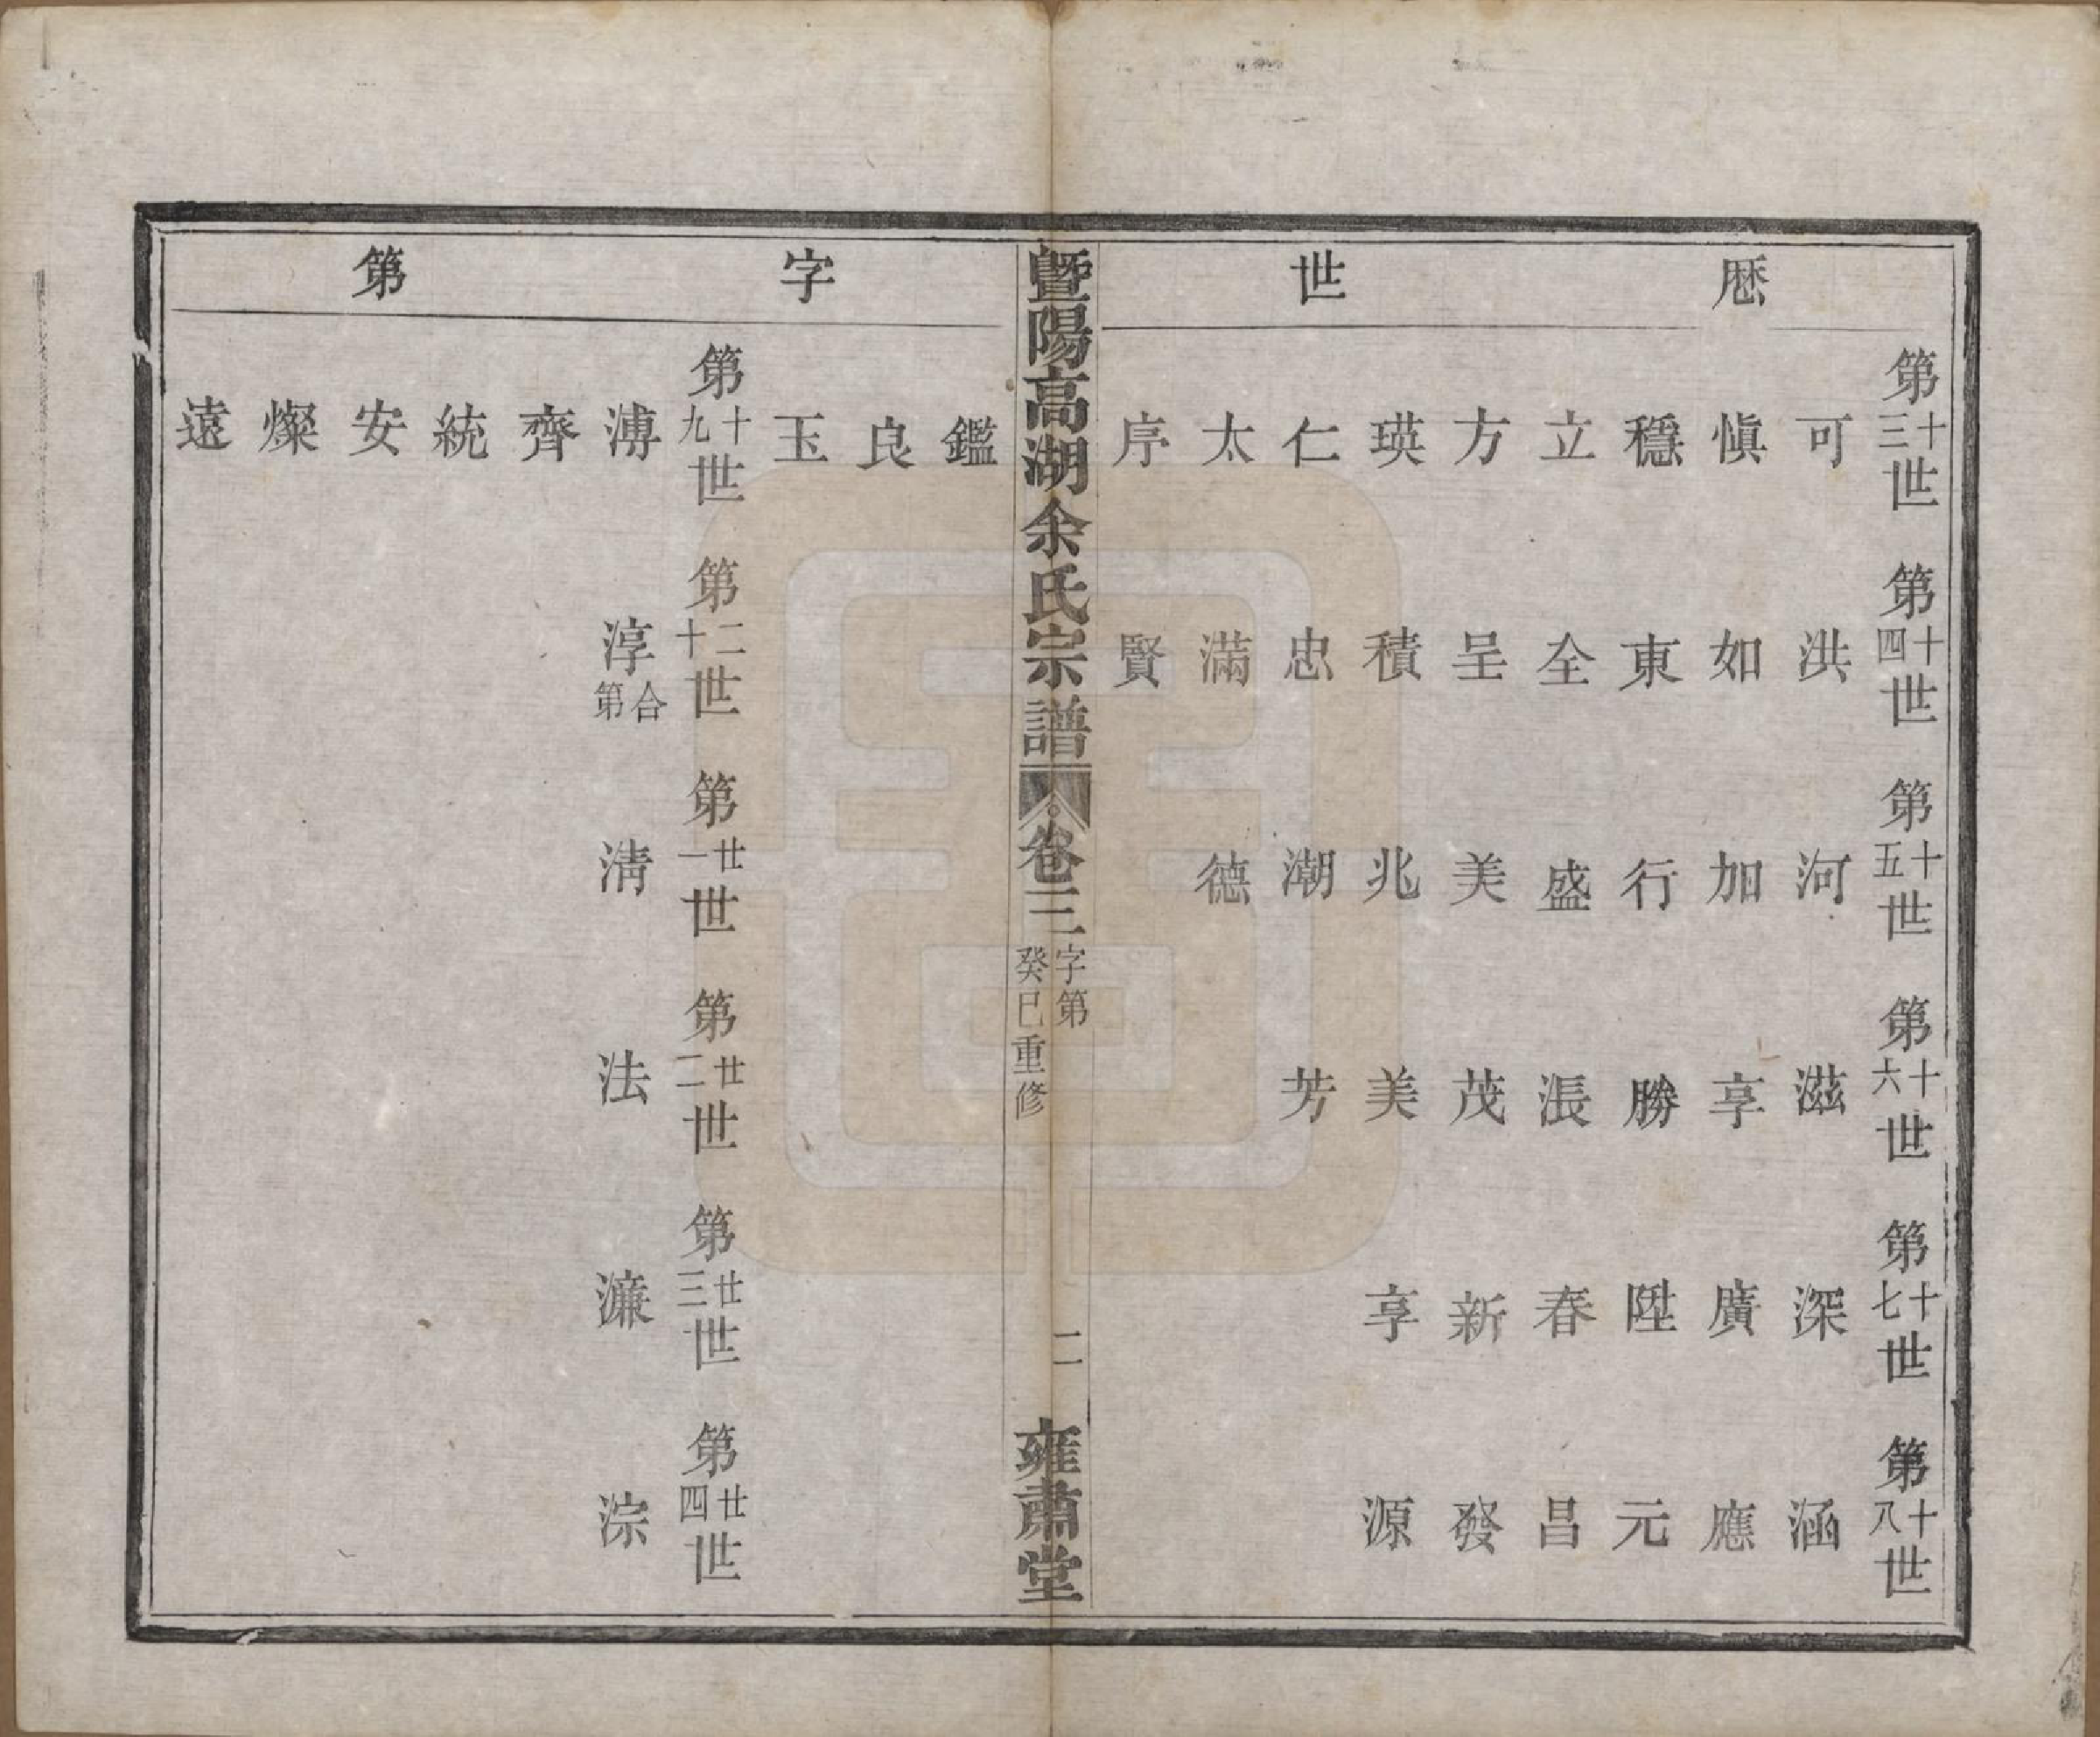 歷世
第十三世 第十四世 第十五世 第十六世 第十七世 第十八世
可 洪 河 滋 深 涵
愼 如 加 享 廣 應
穩 東 行 勝 陞 元
立 全 盛 漲 春 昌
方 呈 美 茂 新 發
瑛 積 兆 美 享 源
仁 忠 潮 芳
太 滿 德
序 賢
暨陽高湖余氏宗譜 卷三 字第 癸巳重修 二 雍肅堂
字第
鑑
良
玉
第十九世 第二十世 第廿一世 第廿二世 第廿三世 第廿四世
溥 淳合第 淸 法 濂 淙
齊
統
安
燦
遠